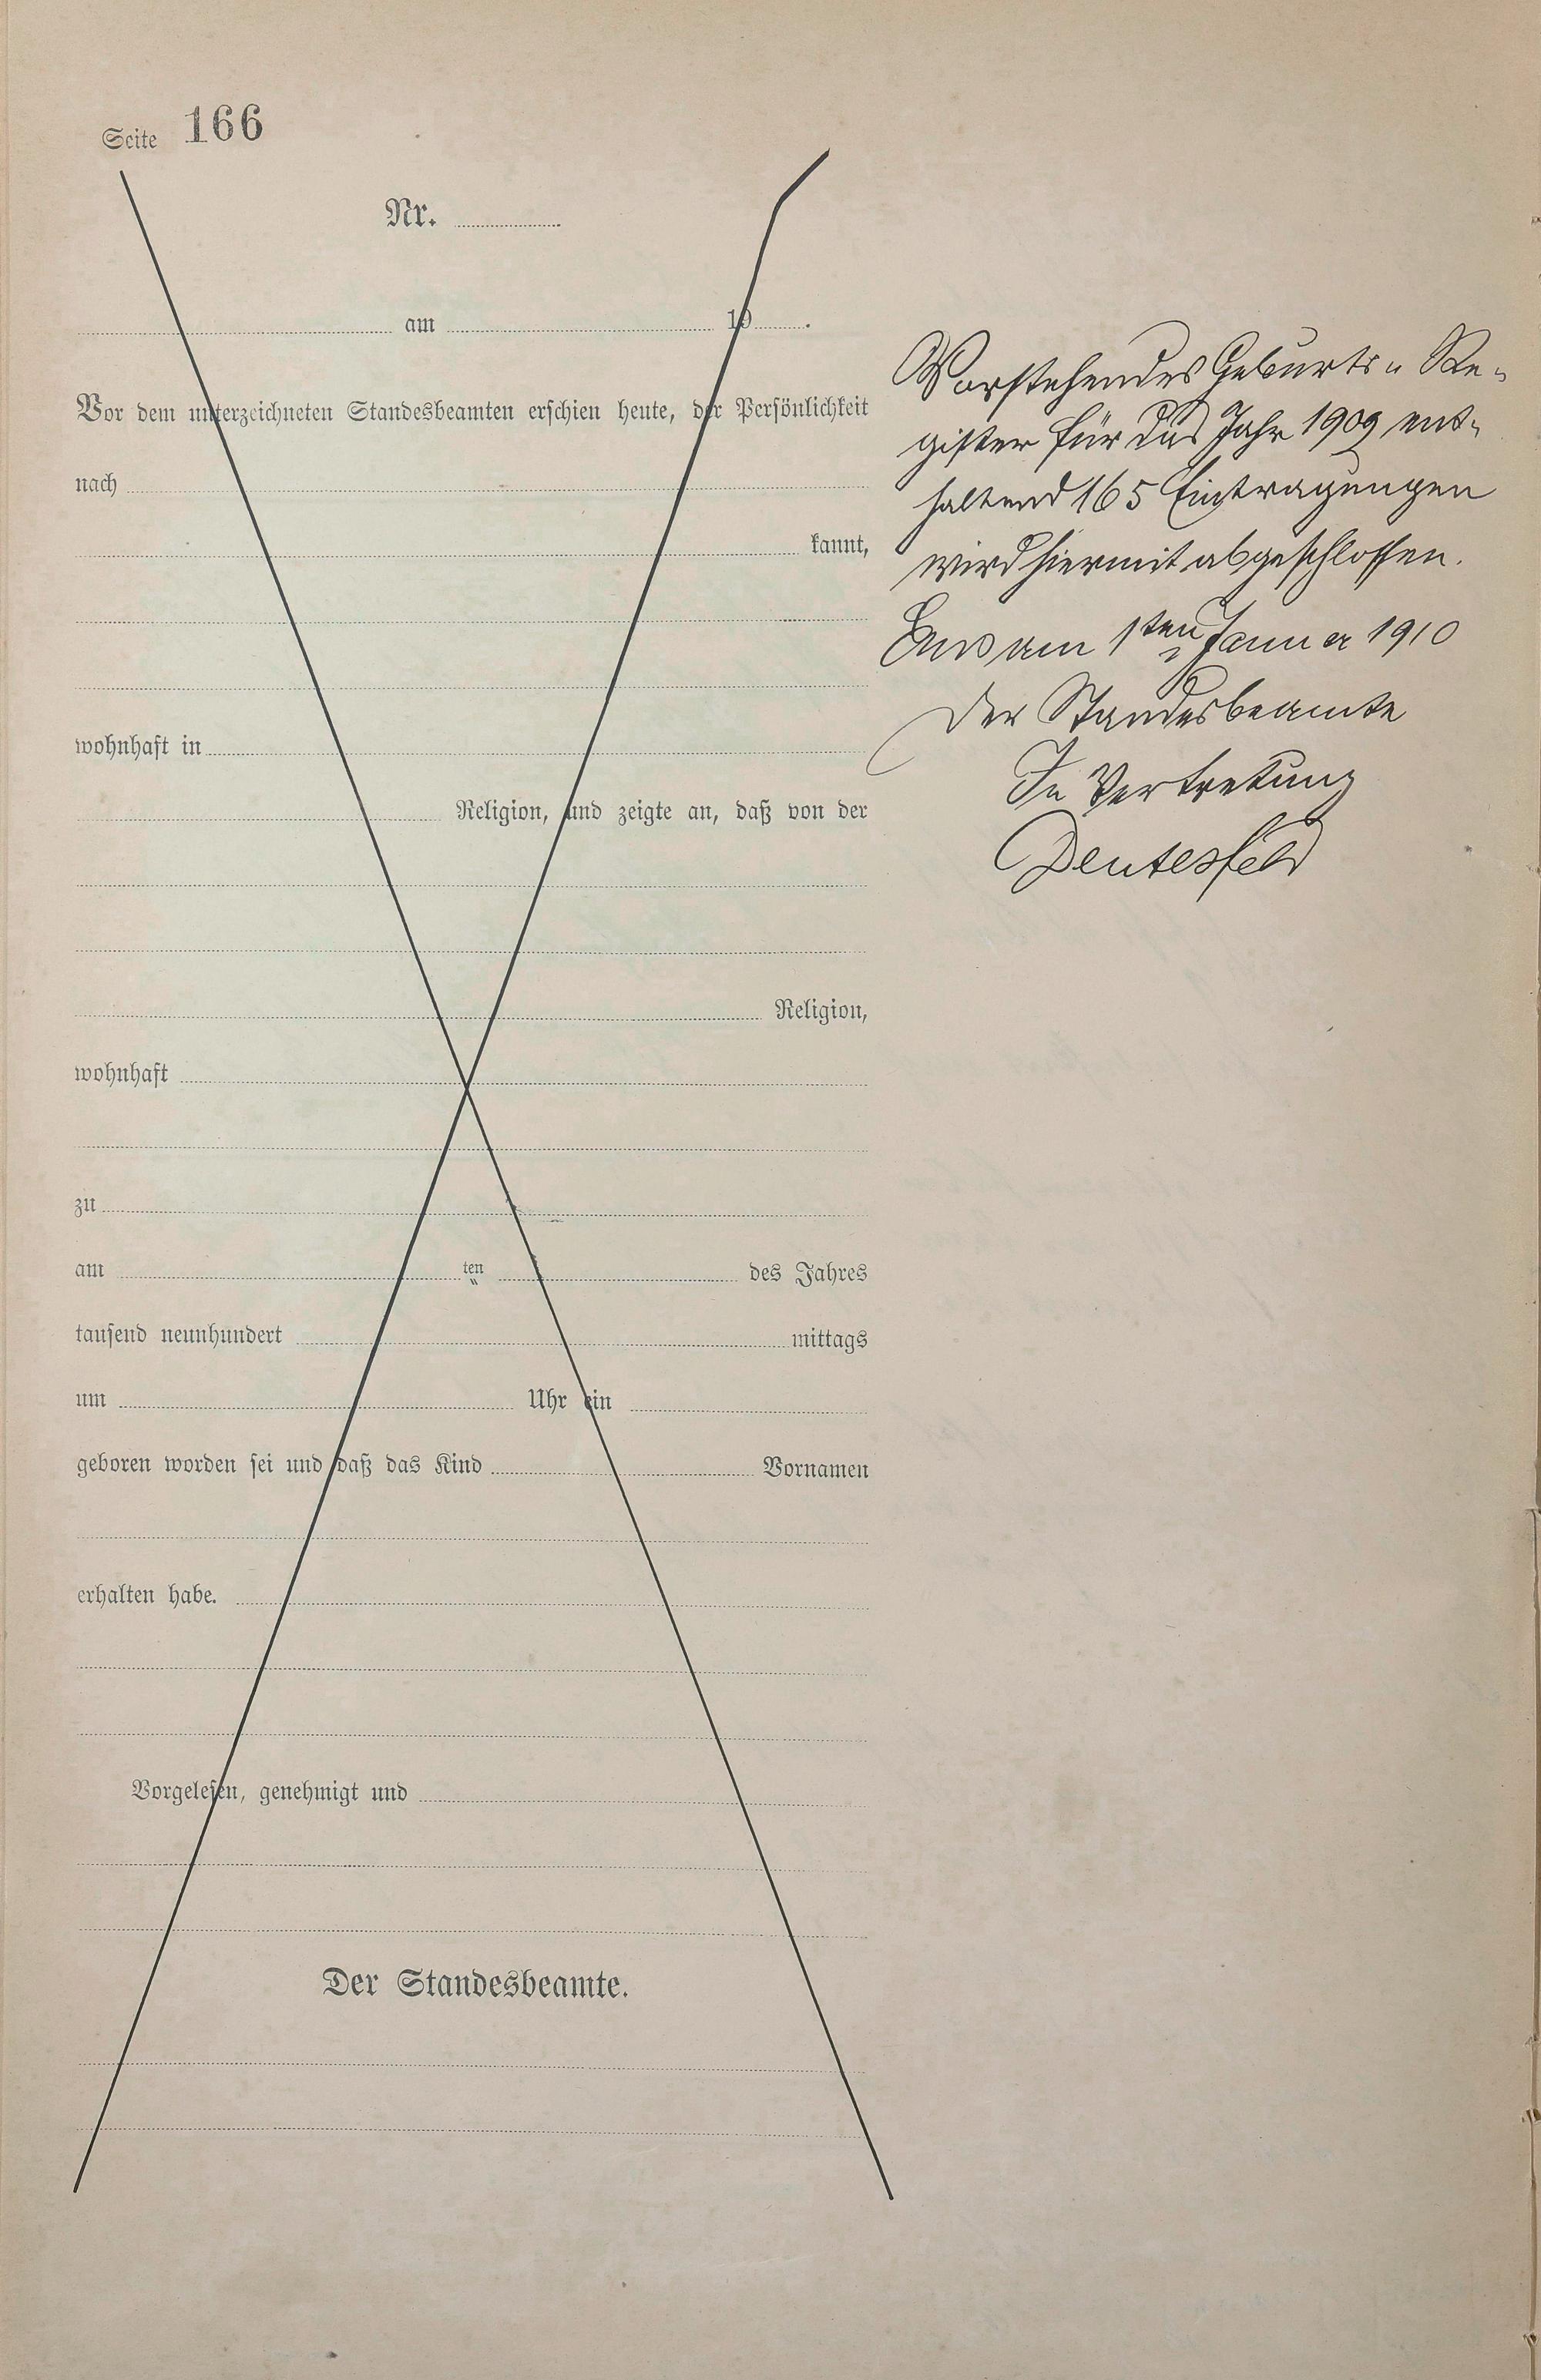 Seite 166
Nr.
am 19 .
Vor dem unterzeichneten Standesbeamten erschien heute, der Persönlichkeit
nach
kannt,
wohnhaft in
Religion, und zeigte an, daß von der
Religion,
wohnhaft
zu
am ten des Jahres
tausend neunhundert mittags
um Uhr ein
geboren worden sei und daß das Kind Vornamen
erhalten habe.
Vorgelesen, genehmigt und
Der Standesbeamte.
Vorstehendes Geburts- Re-
gister für das Jahr 1909 ent-
haltend 165 Eintragungen
wird hiermit abgeschlossen.
am 1ten Januar 1910
Der Standesbeamte
In Vertretung